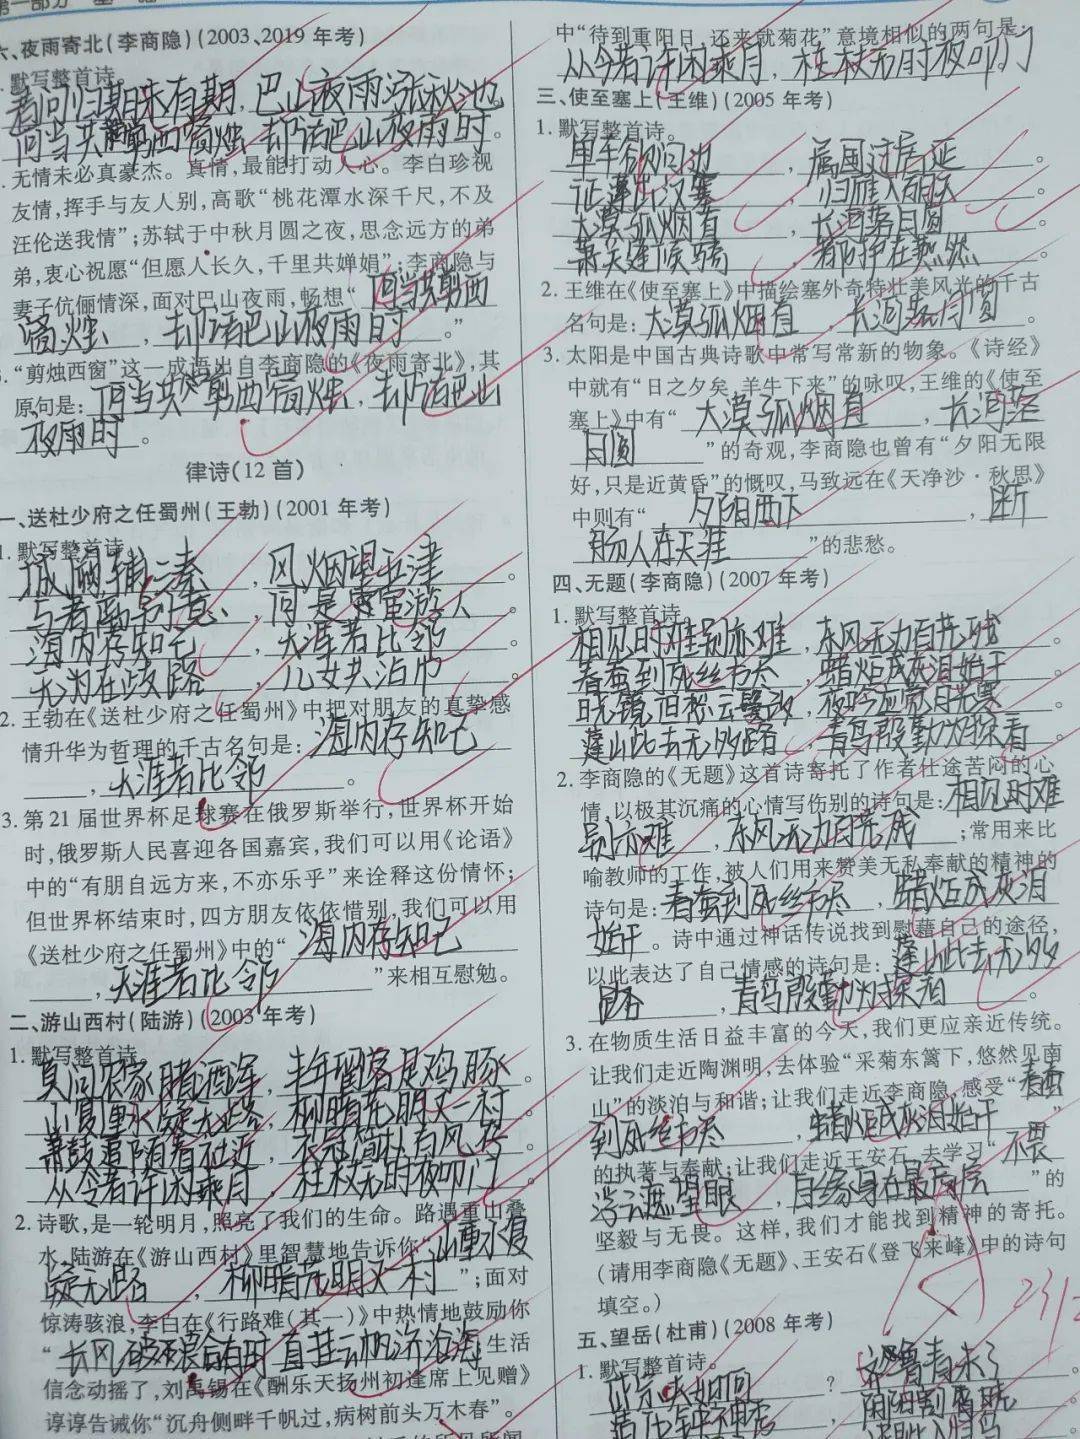 第一部分
六、夜雨寄北(李商隐)(2003、2019年考)
默写整首诗。
君问归期未有期,巴山夜雨涨秋池
何当共剪西窗烛,却话巴山夜雨时。
无情未必真豪杰。真情,最能打动人心。李白珍视
友情,挥手与友人别,高歌“桃花潭水深千尺,不及
汪伦送我情”;苏轼于中秋月圆之夜,思念远方的弟
弟,衷心祝愿“但愿人长久,千里共婵娟”;李商隐与
妻子伉俪情深,面对巴山夜雨,畅想“何当共剪西
窗烛,却话巴山夜雨时。”
“剪烛西窗”这一成语出自李商隐的《夜雨寄北》,其
原句是:何当共剪西窗烛,却话巴山
夜雨时。
律诗(12首)
一、送杜少府之任蜀州(王勃)(2001年考)
1.默写整首诗
城阙辅三秦,风烟望五津。
与君离别意,同是宦游人。
海内存知己,天涯若比邻。
无为在歧路,儿女共沾巾。
2.王勃在《送杜少府之任蜀州》中把对朋友的真挚感
情升华为哲理的千古名句是:海内存知己
,天涯若比邻。
3.第21届世界杯足球赛在俄罗斯举行,世界杯开始
时,俄罗斯人民喜迎各国嘉宾,我们可以用《论语》
中的“有朋自远方来,不亦乐乎”来诠释这份情怀;
但世界杯结束时,四方朋友依依惜别,我们可以用
《送杜少府之任蜀州》中的“海内存知己
,天涯若比邻”来相互慰勉。
二、游山西村(陆游)(2003年考)
1.默写整首诗。
莫问农家腊酒浑,丰年留客足鸡豚。
山复重水疑无路,柳暗花明又一村。
萧鼓追随春社近,衣冠简朴古风存。
从今若许闲乘月,柱杖无时夜叩门。
2.诗歌,是一轮明月,照亮了我们的生命。路遇重山叠
水,陆游在《游山西村》里智慧地告诉你“山重水复
疑无路,柳暗花明又一村”;面对
惊涛骇浪,李白在《行路难(其一)》中热情地鼓励你
“长风破浪会有时直挂云帆济沧海”;生活
信念动摇了,刘禹锡在《酬乐天扬州初逢席上见赠》
谆谆告诫你“沉舟侧畔千帆过,病树前头万木春”。
中“待到重阳日,还来就菊花”意境相似的两句是:
从今若许闲乘月,柱杖无时夜叩门
三、使至塞上(王维)(2005年考)
1.默写整首诗。
单车欲问边,属国过居延。
征蓬出汉塞,归雁入胡天。
大漠孤烟直,长河落日圆。
萧关逢候骑,都护在燕然。
2.王维在《使至塞上》中描绘塞外奇特壮美风光的千古
名句是:大漠孤烟直,长河落日圆。
3.太阳是中国古典诗歌中常写常新的物象。《诗经》
中就有“日之夕矣,羊牛下来”的咏叹,王维的《使至
塞上》中有“大漠孤烟直,长河落
日圆”的奇观,李商隐也曾有“夕阳无限
好,只是近黄昏”的慨叹,马致远在《天净沙·秋思》
中则有“夕阳西下,断
肠人在天涯”的悲愁。
四、无题(李商隐)(2007年考)
1.默写整首诗
相见时难别亦难,东风无力百花残
春蚕到死丝方尽,蜡炬成灰泪始干
晓镜但愁云鬓改,夜吟应觉月光寒
蓬山此去无多路,青鸟殷勤为探看
2.李商隐的《无题》这首诗寄托了作者仕途苦闷的心
情,以极其沉痛的心情写伤别的诗句是:相见时难
别亦难,东风无力百花残;常用来比
喻教师的工作,被人们用来赞美无私奉献的精神的
诗句是:春蚕到死丝方尽,蜡炬成灰泪
始干。诗中通过神话传说找到慰藉自己的途径,
以此表达了自己情感的诗句是:蓬山此去无多
路,青鸟殷勤为探看。
3.在物质生活日益丰富的今天,我们更应亲近传统。
让我们走近陶渊明,去体验“采菊东篱下,悠然见南
山”的淡泊与和谐;让我们走近李商隐,感受“春蚕
到死丝方尽,蜡炬成灰泪始干”
的执著与奉献;让我们走近王安石,去学习“不畏
浮云遮望眼,自缘身在最高层”的
坚毅与无畏。这样,我们才能找到精神的寄托。
(请用李商隐《无题》、王安石《登飞来峰》中的诗句
填空。)
五、望岳(杜甫)(2008年考)
1.默写整首诗。
岱宗夫如何?齐鲁青未了
造化钟神秀,阴阳割昏晓